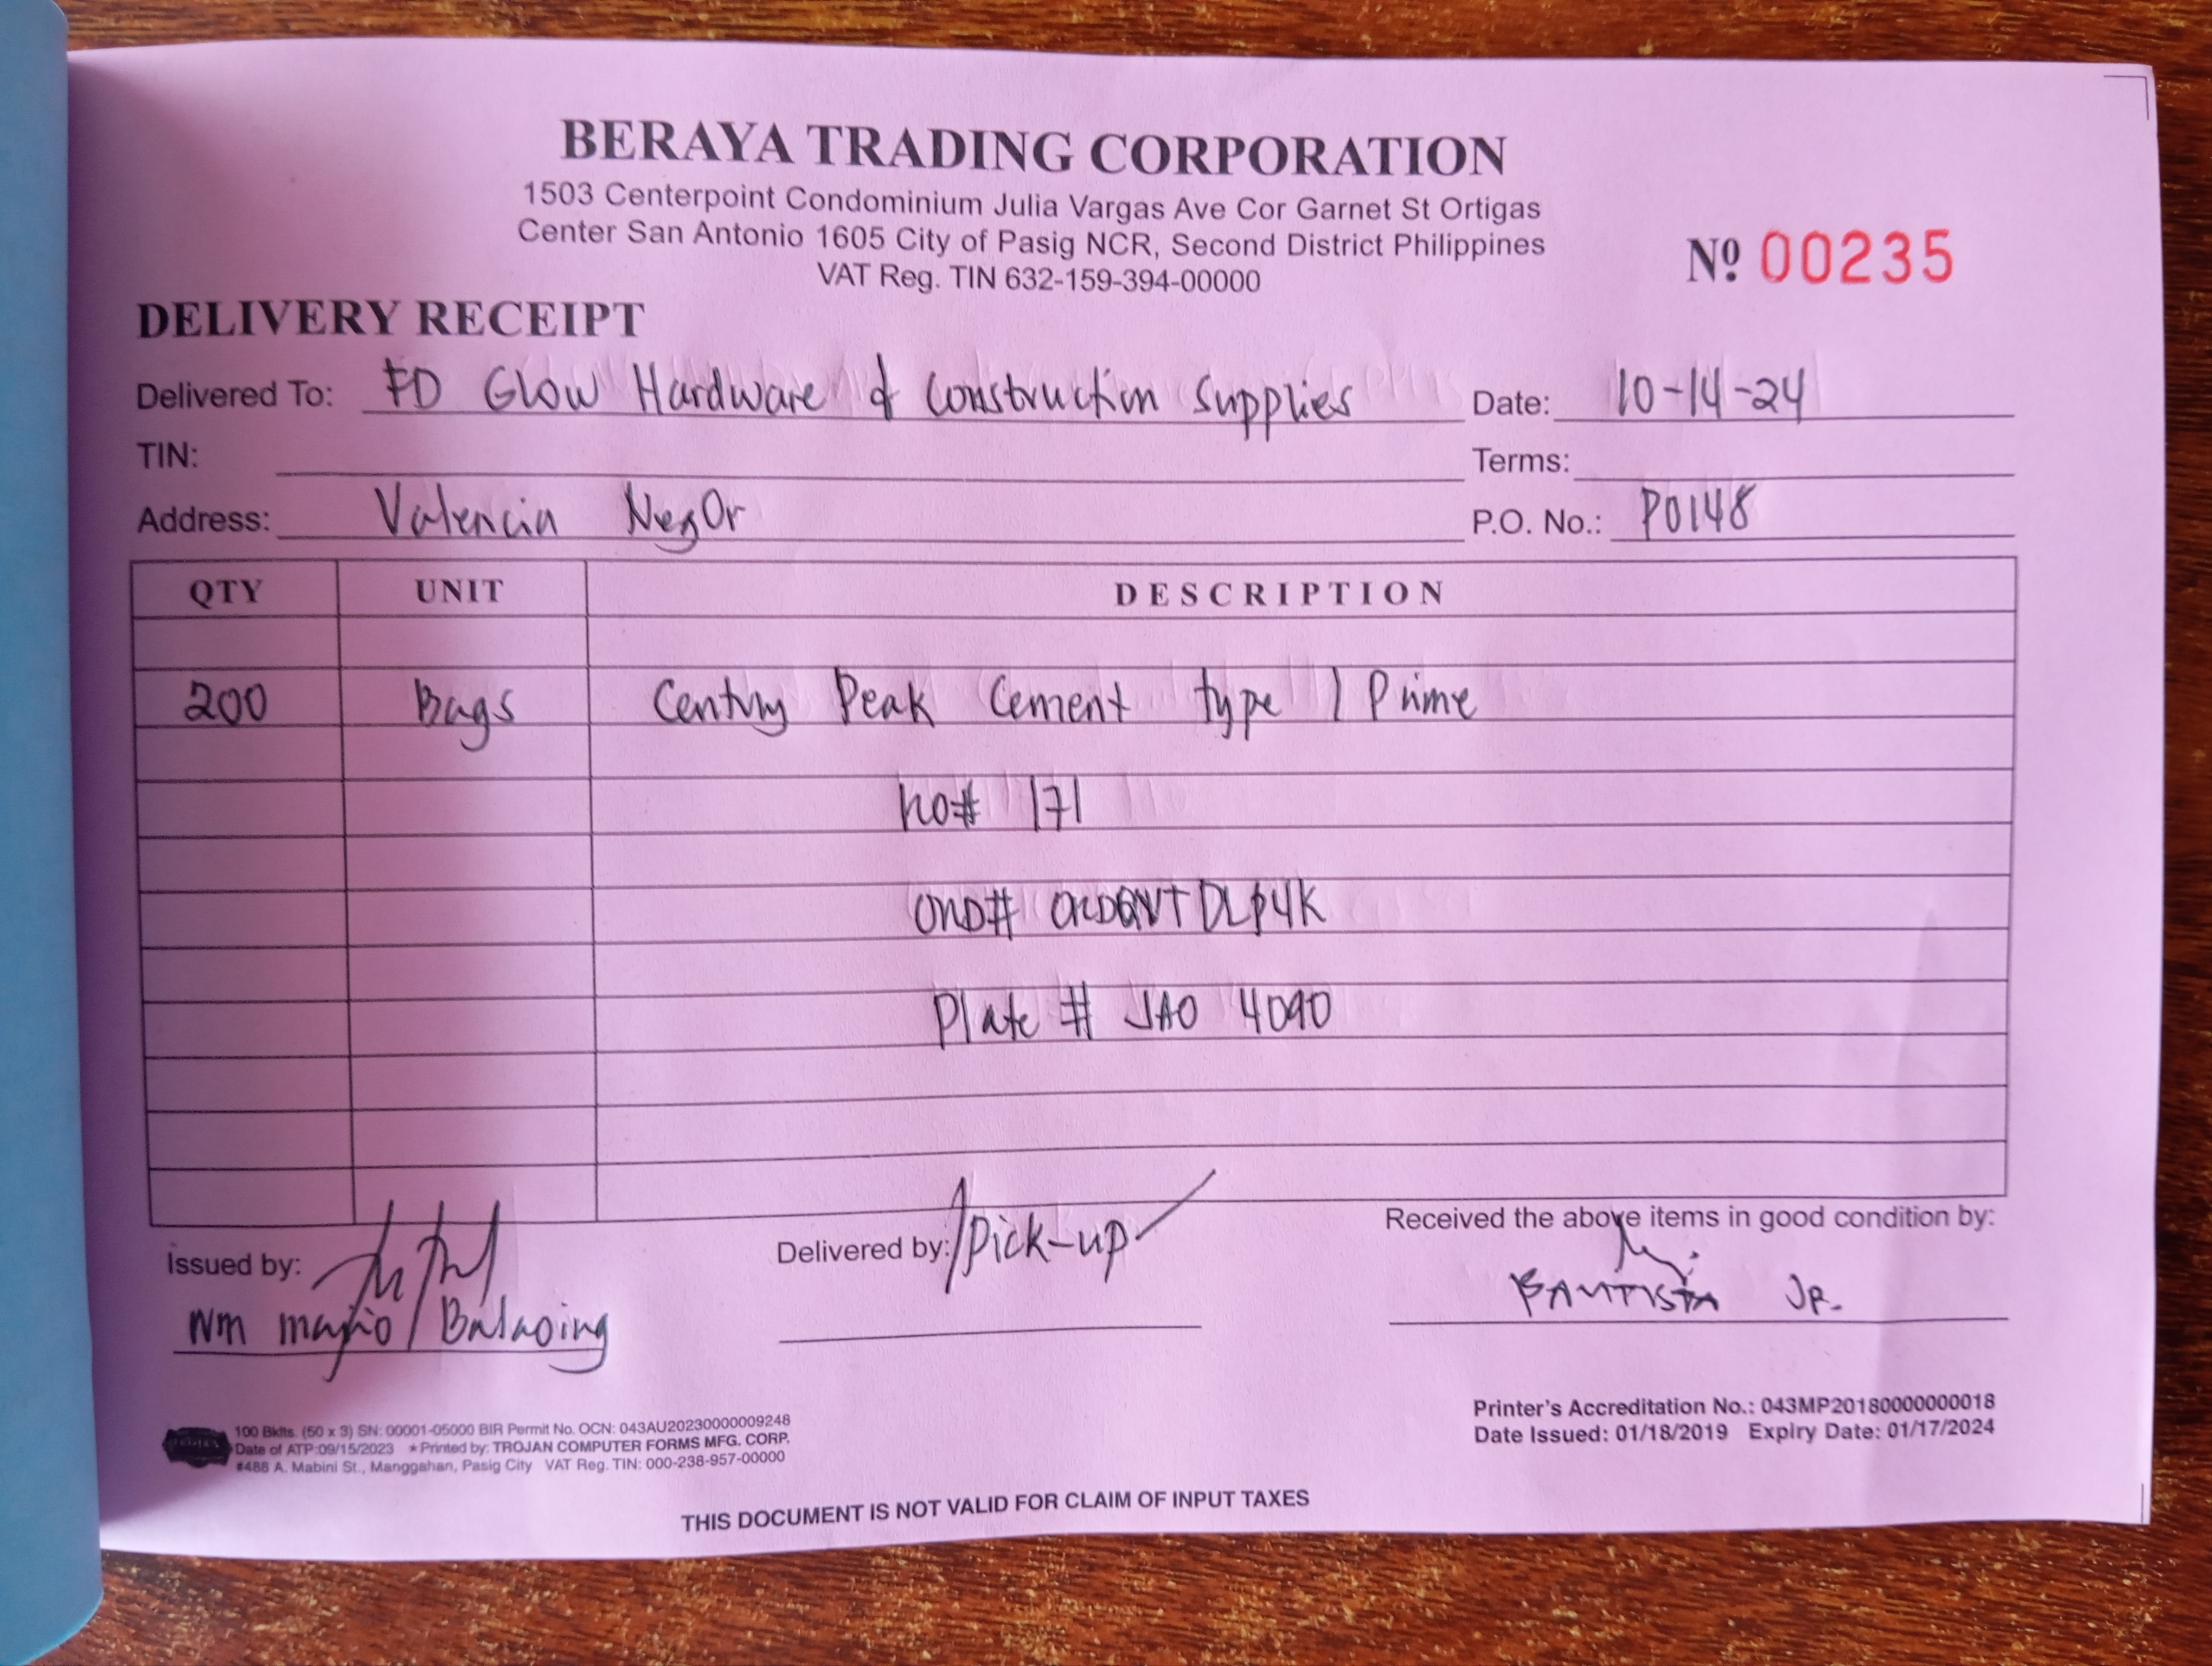 BERAYA TRADING CORPORATION
1503 Centerpoint Condominium Julia Vargas Ave Cor Garnet St Ortigas
Center San Antonio 1605 City of Pasig NCR, Second District Philippines
VAT Reg. TIN 632-159-394-00000
Nº 00235
DELIVERY RECEIPT
Delivered To: FD Glow Hardware & Construction Supplies Date: 10-14-24
TIN: Terms:
Address: Valencia NegOr P.O. No.: PO148
QTY UNIT DESCRIPTION
200 Bags Century Peak Cement type 1 Prime
171
Plate # JAO 4090
Received the above items in good condition by:
Issued by: Delivered by: pick-up
BAUTISTA JR.
Printer's Accreditation No.: 043MP20180000000018
Date Issued: 01/18/2019 Expiry Date: 01/17/2024
100 Bklts. (50 x 3) SN: 00001-05000 BIR Permit No. OCN: 043AU20230000009248
Date of ATP:09/15/2023 ★Printed by: TROJAN COMPUTER FORMS MFG. CORP.
#488 A. Mabini St., Manggahan, Pasig City VAT Reg. TIN: 000-238-957-00000
THIS DOCUMENT IS NOT VALID FOR CLAIM OF INPUT TAXES